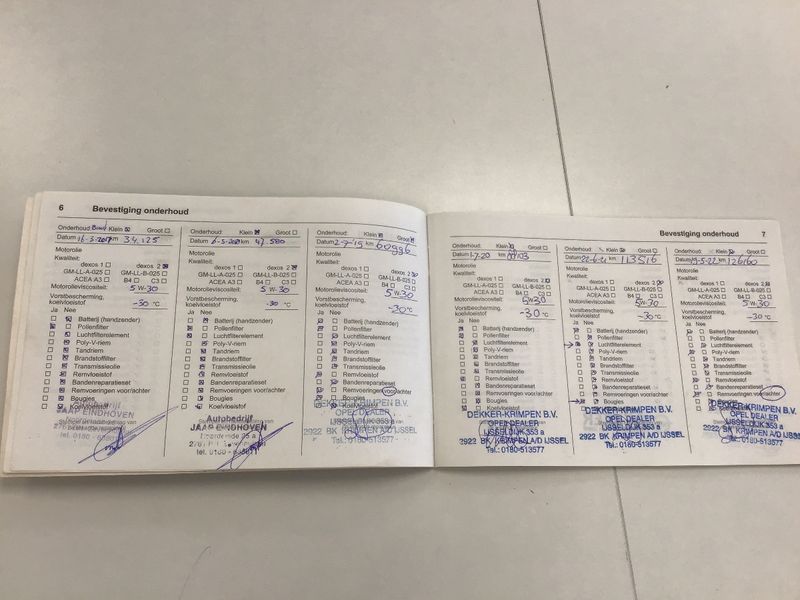 6 Bevestiging onderhoud
Onderhoud: Klein Groot
Datum 16-3-2017 km 34.125
Motorolie
Kwaliteit:
dexos 1 dexos 2
GM-LL-A-025 GM-LL-B-025
ACEA A3 B4 C3
Motorolieviscositeit: 5W-30
Vorstbescherming,
koelvloeistof -30 °C
Ja Nee
Batterij (handzender)
Pollenfilter
Luchtfilterelement
Poly-V-riem
Tandriem
Brandstoffilter
Transmissieolie
Remvloeistof
Bandenreparatieset
Remvoeringen voor/achter
Bougies
Koelvloeistof
JAAP EINDHOVEN
Onderhoud: Klein Groot
Datum km 47.580
Motorolie
Kwaliteit:
dexos 1 dexos 2
GM-LL-A-025 GM-LL-B-025
ACEA A3 B4 C3
Motorolieviscositeit: 5W-30
Vorstbescherming,
koelvloeistof -30 °C
Ja Nee
Batterij (handzender)
Pollenfilter
Luchtfilterelement
Poly-V-riem
Tandriem
Brandstoffilter
Transmissieolie
Remvloeistof
Bandenreparatieset
Remvoeringen voor/achter
Bougies
Koelvloeistof
Autobedrijf
JAAP EINDHOVEN
Onderhoud: Klein Groot
Datum 2-7-19 km 60986
Motorolie
Kwaliteit:
dexos 1 dexos 2
GM-LL-A-025 GM-LL-B-025
ACEA A3 B4 C3
Motorolieviscositeit: 5W-30
Vorstbescherming,
koelvloeistof -30°C
Ja Nee
Batterij (handzender)
Pollenfilter
Luchtfilterelement
Poly-V-riem
Tandriem
Brandstoffilter
Transmissieolie
Remvloeistof
Bandenreparatieset
Remvoeringen voor/achter
Bougies
DEKKER-KRIMPEN B.V.
OPEL DEALER
IJSSELDIJK 353 a
2922 BK KRIMPEN A/D IJSSEL
Tel.: 0180-513577
Bevestiging onderhoud 7
Onderhoud: Klein Groot
Datum 1-7-20 km
Motorolie
Kwaliteit:
dexos 1 dexos 2
GM-LL-A-025 GM-LL-B-025
ACEA A3 B4 C3
Motorolieviscositeit: 5W30
Vorstbescherming,
koelvloeistof -30°C
Ja Nee
Batterij (handzender)
Pollenfilter
Luchtfilterelement
Poly-V-riem
Tandriem
Brandstoffilter
Transmissieolie
Remvloeistof
Bandenreparatieset
Remvoeringen voor/achter
Bougies
Koelvloeistof
DEKKER-KRIMPEN B.V.
OPEL DEALER
IJSSELDIJK 353 a
2922 BK KRIMPEN A/D IJSSEL
Tel.: 0180-513577
Onderhoud: Klein Groot
Datum 22-6-21 km 113516
Motorolie
Kwaliteit:
dexos 1 dexos 2
GM-LL-A-025 GM-LL-B-025
ACEA A3 B4 C3
Motorolieviscositeit: 5W-30
Vorstbescherming,
koelvloeistof -30°C
Ja Nee
Batterij (handzender)
Pollenfilter
Luchtfilterelement
Poly-V-riem
Tandriem
Brandstoffilter
Transmissieolie
Remvloeistof
Bandenreparatieset
Remvoeringen voor/achter
Bougies
Koelvloeistof
DEKKER-KRIMPEN B.V.
OPEL DEALER
IJSSELDIJK 353 a
2922 BK KRIMPEN A/D IJSSEL
Tel.: 0180-513577
Onderhoud: Klein Groot
Datum 19-5-22 km 126160
Motorolie
Kwaliteit:
dexos 1 dexos 2
GM-LL-A-025 GM-LL-B-025
ACEA A3 B4 C3
Motorolieviscositeit: 5W-30
Vorstbescherming,
koelvloeistof -30°C
Ja Nee
Batterij (handzender)
Pollenfilter
Luchtfilterelement
Poly-V-riem
Tandriem
Brandstoffilter
Transmissieolie
Remvloeistof
Bandenreparatieset
Remvoeringen voor/achter
Bougies
DEKKER-KRIMPEN B.V.
OPEL DEALER
IJSSELDIJK 353 a
2922 BK KRIMPEN A/D IJSSEL
Tel.: 0180-513577